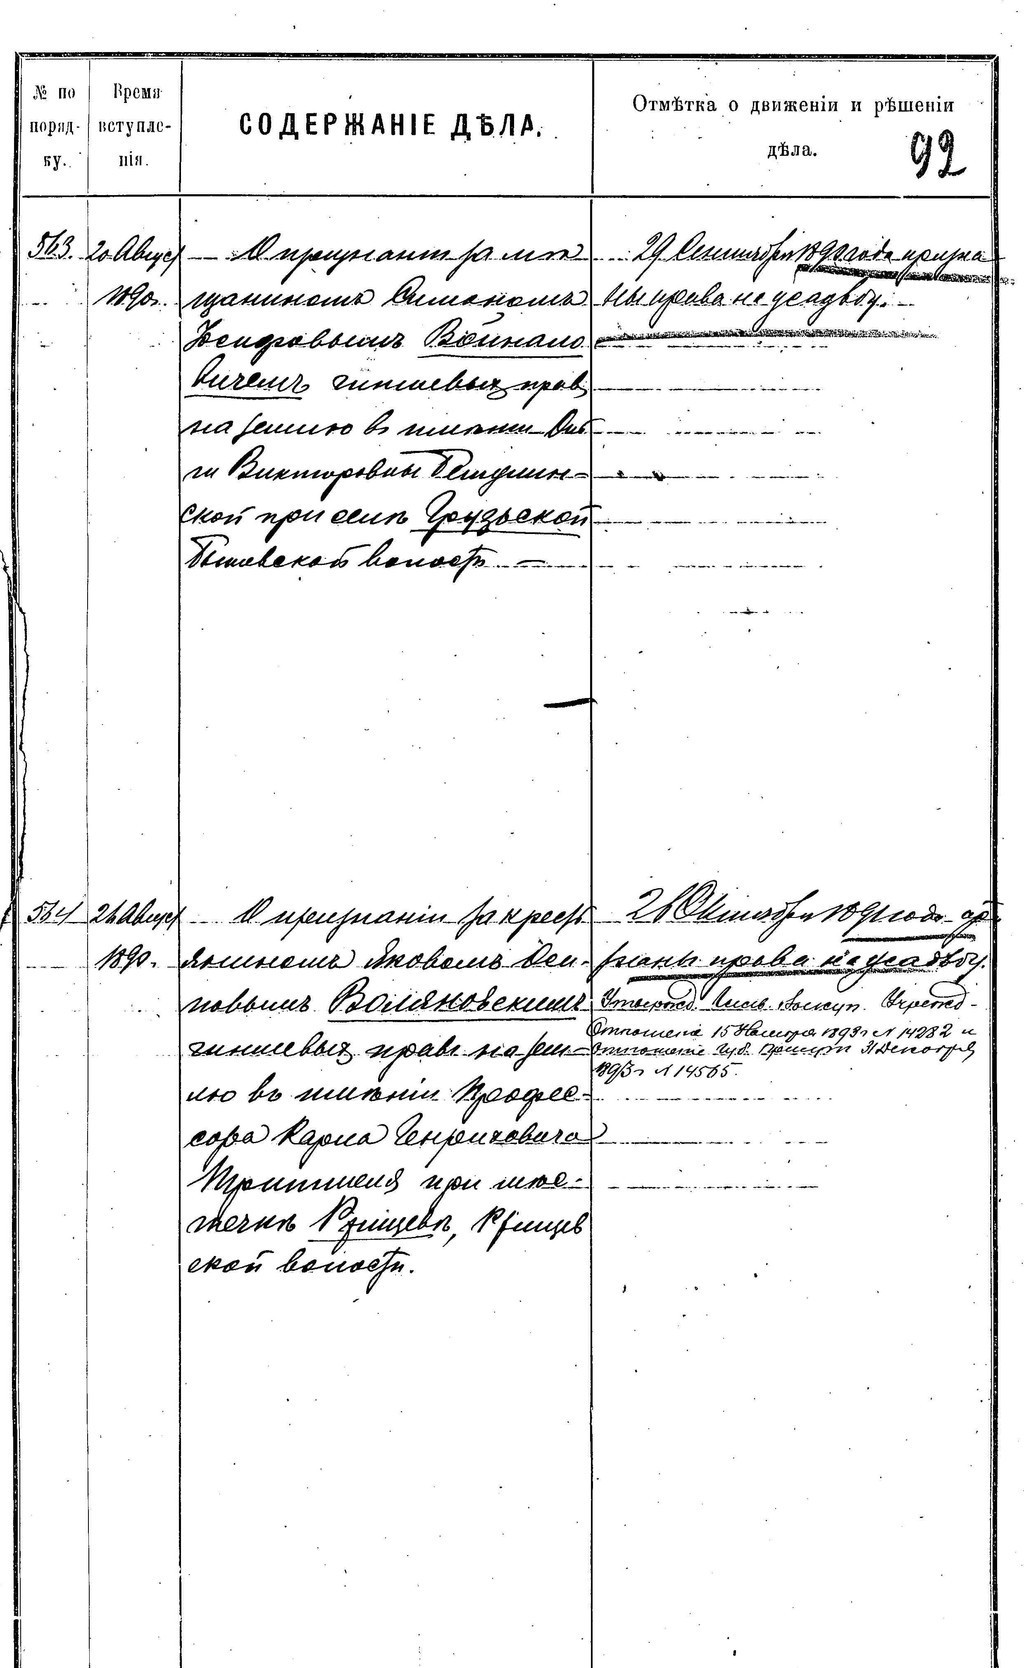 № по поряд-ку.
Время вступле-нія.
СОДЕРЖАНІЕ ДѢЛА.
Отмѣтка о движеніи и рѣшеніи
дѣла.
92
563. 20 Август
1890.
О признаніи за мѣ
щаниномъ Симономъ
Іосифовымъ Войнало
вичемъ чиншевыхъ прав
на землю въ имѣнии Оль
ги Викторовны
ской при селѣ Грузьской
Бышевской волости
29 Сентября 1890 года призна
ны права на усадьбу.
564 26 Август
1890.
О признаніи за крест
яниномъ Яковомъ Оси-
повымъ Воляновскимъ
чиншевыхъ правъ на зем-
лю въ имѣніи Професс-
сора Карла Генриховича
Тритшеля при мѣс-
течкѣ Ржищевѣ, Ржищев
ской волости.
26 Октября 1891 года пр
знаны права на усадьбу.
Выкуп. Учрежд.
Отношеніе 15 Ноября 1893 г. № 14282 и
отношение Губ. Декабря
1893 г. № 14565.